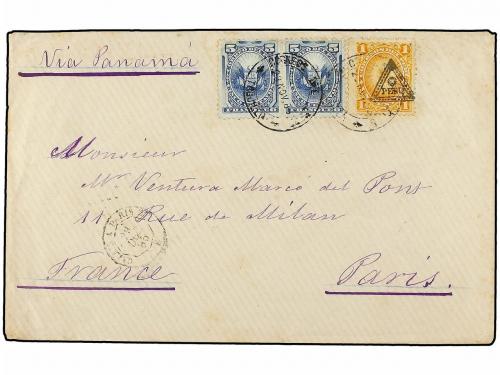 Via Panamá
5 5 1
PERU
Monsieur
Mr Ventura Marcó del Pont
11 Rue de Milan
France Paris.